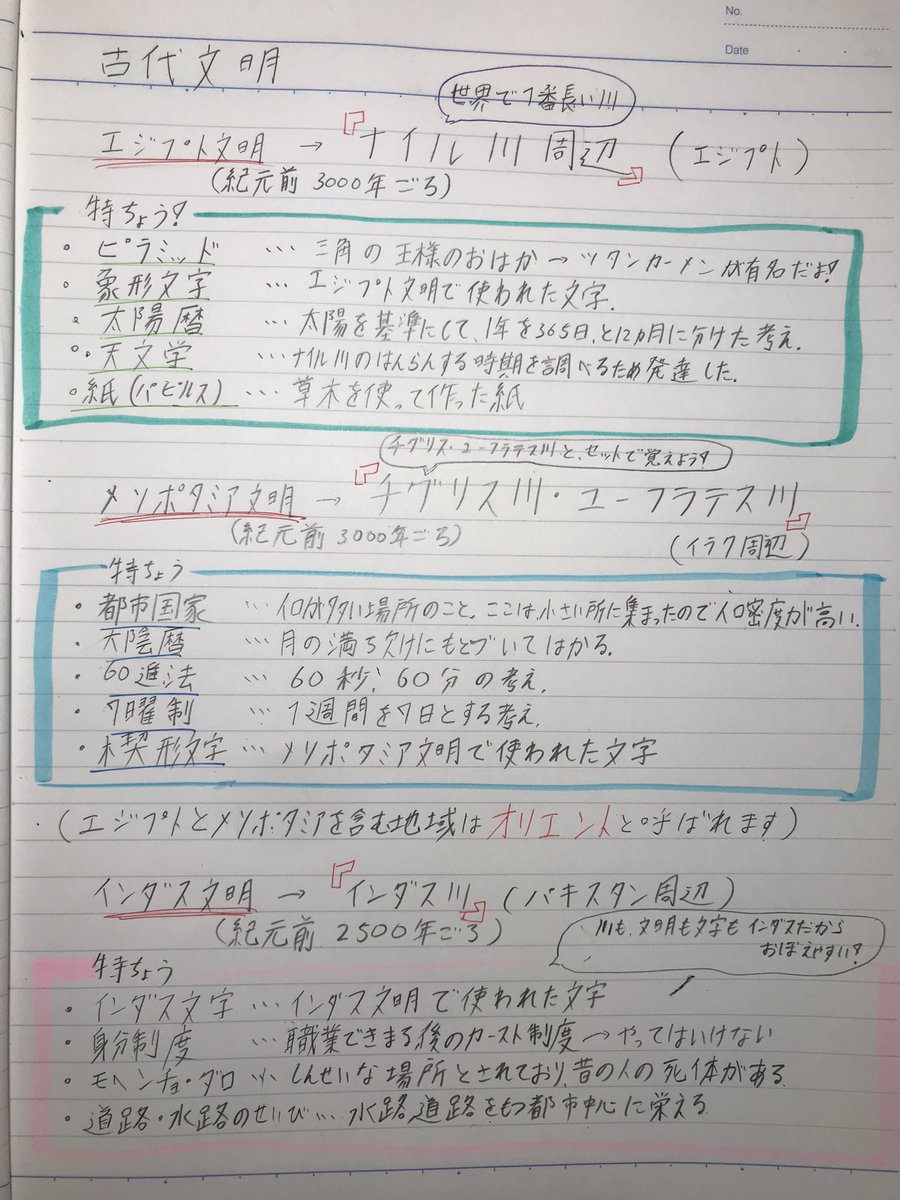 No.
Date
古代文明
世界で1番長い川
エジプト文明 → 『ナイル川周辺』 (エジプト)
(紀元前3000年ごろ)
特ちょう!
・ピラミッド … 三角の王様のおはか → ツタンカーメンが有名だよ!
・象形文字 … エジプト文明で使われた文字.
・太陽暦 … 太陽を基準にして、1年を365日、と12ヵ月に分けた考え.
・天文学 … ナイル川のはんらんする時期を調べるため発達した.
・紙(パピルス) … 草木を使って作った紙
チグリス・ユーフラテス川と、セットで覚えよう!
メソポタミア文明 → 『チグリス川・ユーフラテス川』
(紀元前3000年ごろ)
(イラク周辺)
特ちょう
・都市国家 … 人口が多い場所のこと。ここは小さい所に集まったので人口密度が高い.
・太陰暦 … 月の満ち欠けにもとづいてはかる.
・60進法 … 60秒、60分の考え.
・7曜制 … 1週間を7日とする考え.
・楔形文字 … メソポタミア文明で使われた文字
・(エジプトとメソポタミアを含む地域はオリエントと呼ばれます)
インダス文明 → 『インダス川』 (パキスタン周辺)
(紀元前2500年ごろ)
川も、文明も文字もインダスだから
おぼえやすい!
特ちょう
・インダス文字 … インダス文明で使われた文字
・身分制度 … 職業できまる後のカースト制度 → やってはいけない
・モヘンチョ・ダロ … しんせいな場所とされており、昔の人の死体がある
・道路・水路のせいび … 水路道路をもつ都市中心に栄える